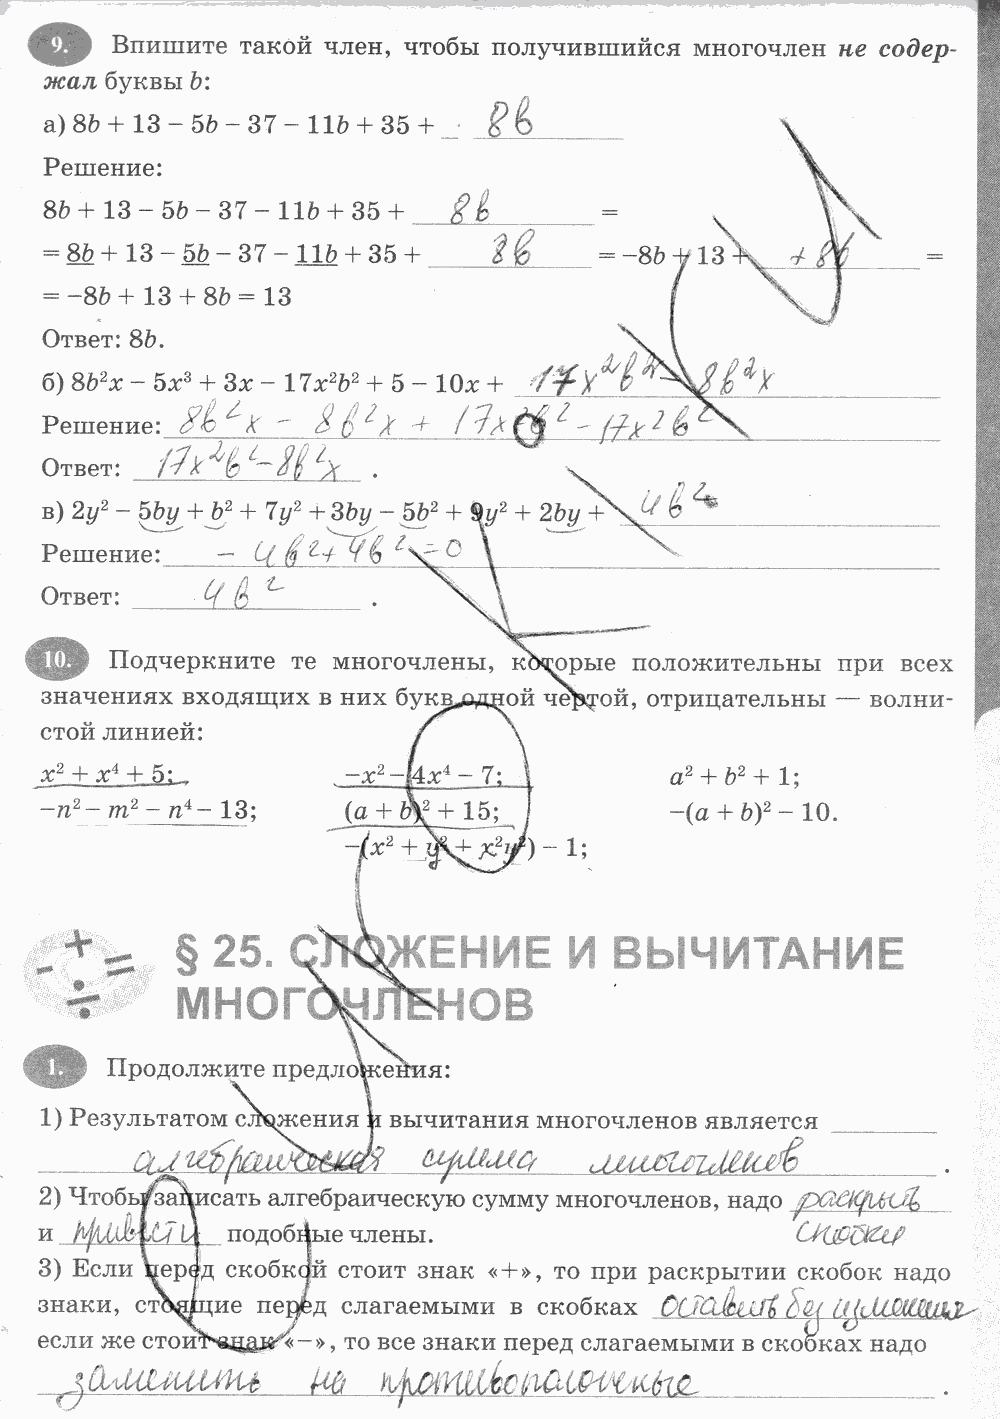 9. Впишите такой член, чтобы получившийся многочлен не содер-
жал буквы b:
а) 8b + 13 − 5b − 37 − 11b + 35 + 8b
Решение:
8b + 13 − 5b − 37 − 11b + 35 + 8b =
= 8b + 13 − 5b − 37 − 11b + 35 + 8b = −8b + 13 + +8b =
= −8b + 13 + 8b = 13
Ответ: 8b.
б) 8b²x − 5x³ + 3x − 17x²b² + 5 − 10x + 17x²b² − 8b²x
Решение: 8b²x − 8b²x + 17x²b² − 17x²b²
Ответ: 17x²b² − 8b²x .
в) 2y² − 5by + b² + 7y² + 3by − 5b² + 9y² + 2by + 4b²
Решение: − 4b² + 4b² = 0
Ответ: 4b² .
10. Подчеркните те многочлены, которые положительны при всех
значениях входящих в них букв одной чертой, отрицательны — волни-
стой линией:
x² + x⁴ + 5; −x² − 4x⁴ − 7; a² + b² + 1;
−n² − m² − n⁴ − 13; (a + b)² + 15; −(a + b)² − 10.
−(x² + y² + x²y²) − 1;
§ 25. СЛОЖЕНИЕ И ВЫЧИТАНИЕ
МНОГОЧЛЕНОВ
1. Продолжите предложения:
1) Результатом сложения и вычитания многочленов является
алгебраическая сумма многочленов .
2) Чтобы записать алгебраическую сумму многочленов, надо раскрыть
скобки
и привести подобные члены.
3) Если перед скобкой стоит знак «+», то при раскрытии скобок надо
знаки, стоящие перед слагаемыми в скобках оставить без изменения
если же стоит знак «−», то все знаки перед слагаемыми в скобках надо
заменить на противоположные .